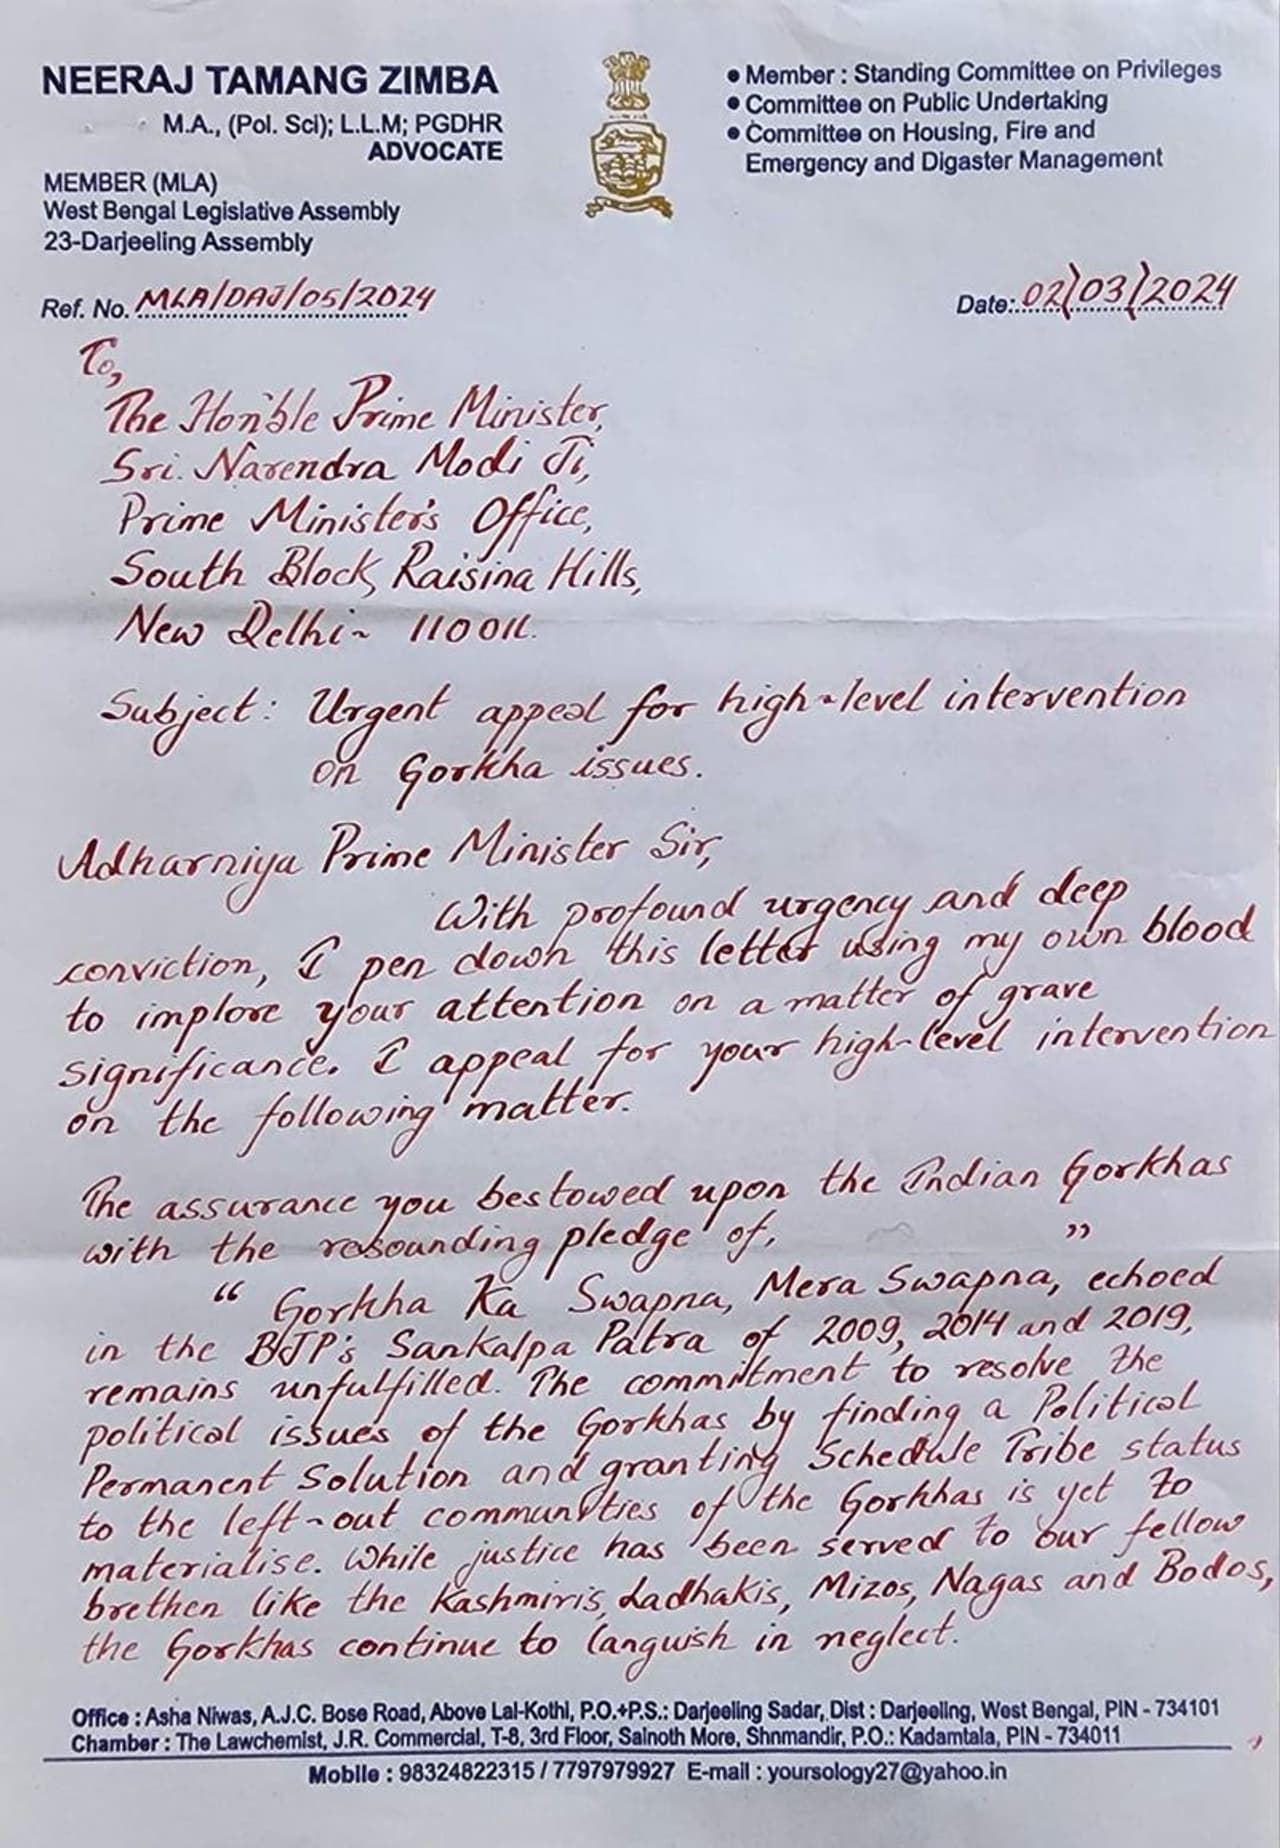 NEERAJ TAMANG ZIMBA
M.A., (Pol. Sci); L.L.M; PGDHR
ADVOCATE
MEMBER (MLA)
West Bengal Legislative Assembly
23-Darjeeling Assembly
• Member : Standing Committee on Privileges
• Committee on Public Undertaking
• Committee on Housing, Fire and
Emergency and Digaster Management
Ref. No. MLA/DAJ/05/2024
Date: 02/03/2024
To,
The Hon'ble Prime Minister,
Sri. Narendra Modi Ji,
Prime Minister's Office,
South Block, Raisina Hills,
New Delhi - 110011.
Subject: Urgent appeal for high-level intervention
on Gorkha issues.
Adharniya Prime Minister Sir,
With profound urgency and deep
conviction, I pen down this letter using my own blood
to implore your attention on a matter of grave
significance. I appeal for your high-level intervention
on the following matter.
The assurance you bestowed upon the Indian Gorkhas
with the resounding pledge of,
“ Gorkha Ka Swapna, Mera Swapna, ” echoed
in the BJP's Sankalpa Patra of 2009, 2014 and 2019,
remains unfulfilled. The commitment to resolve the
political issues of the Gorkhas by finding a Political
Permanent Solution and granting Schedule Tribe status
to the left-out communities of the Gorkhas is yet to
materialise. While justice has been served to our fellow
brethen like the Kashmiris, Ladhakis, Mizos, Nagas and Bodos,
the Gorkhas continue to languish in neglect.
Office : Asha Niwas, A.J.C. Bose Road, Above Lal-Kothi, P.O.+P.S.: Darjeeling Sadar, Dist : Darjeeling, West Bengal, PIN - 734101
Chamber : The Lawchemist, J.R. Commercial, T-8, 3rd Floor, Salnoth More, Shnmandir, P.O.: Kadamtala, PIN - 734011
Mobile : 98324822315 / 7797979927 E-mail : yoursology27@yahoo.in